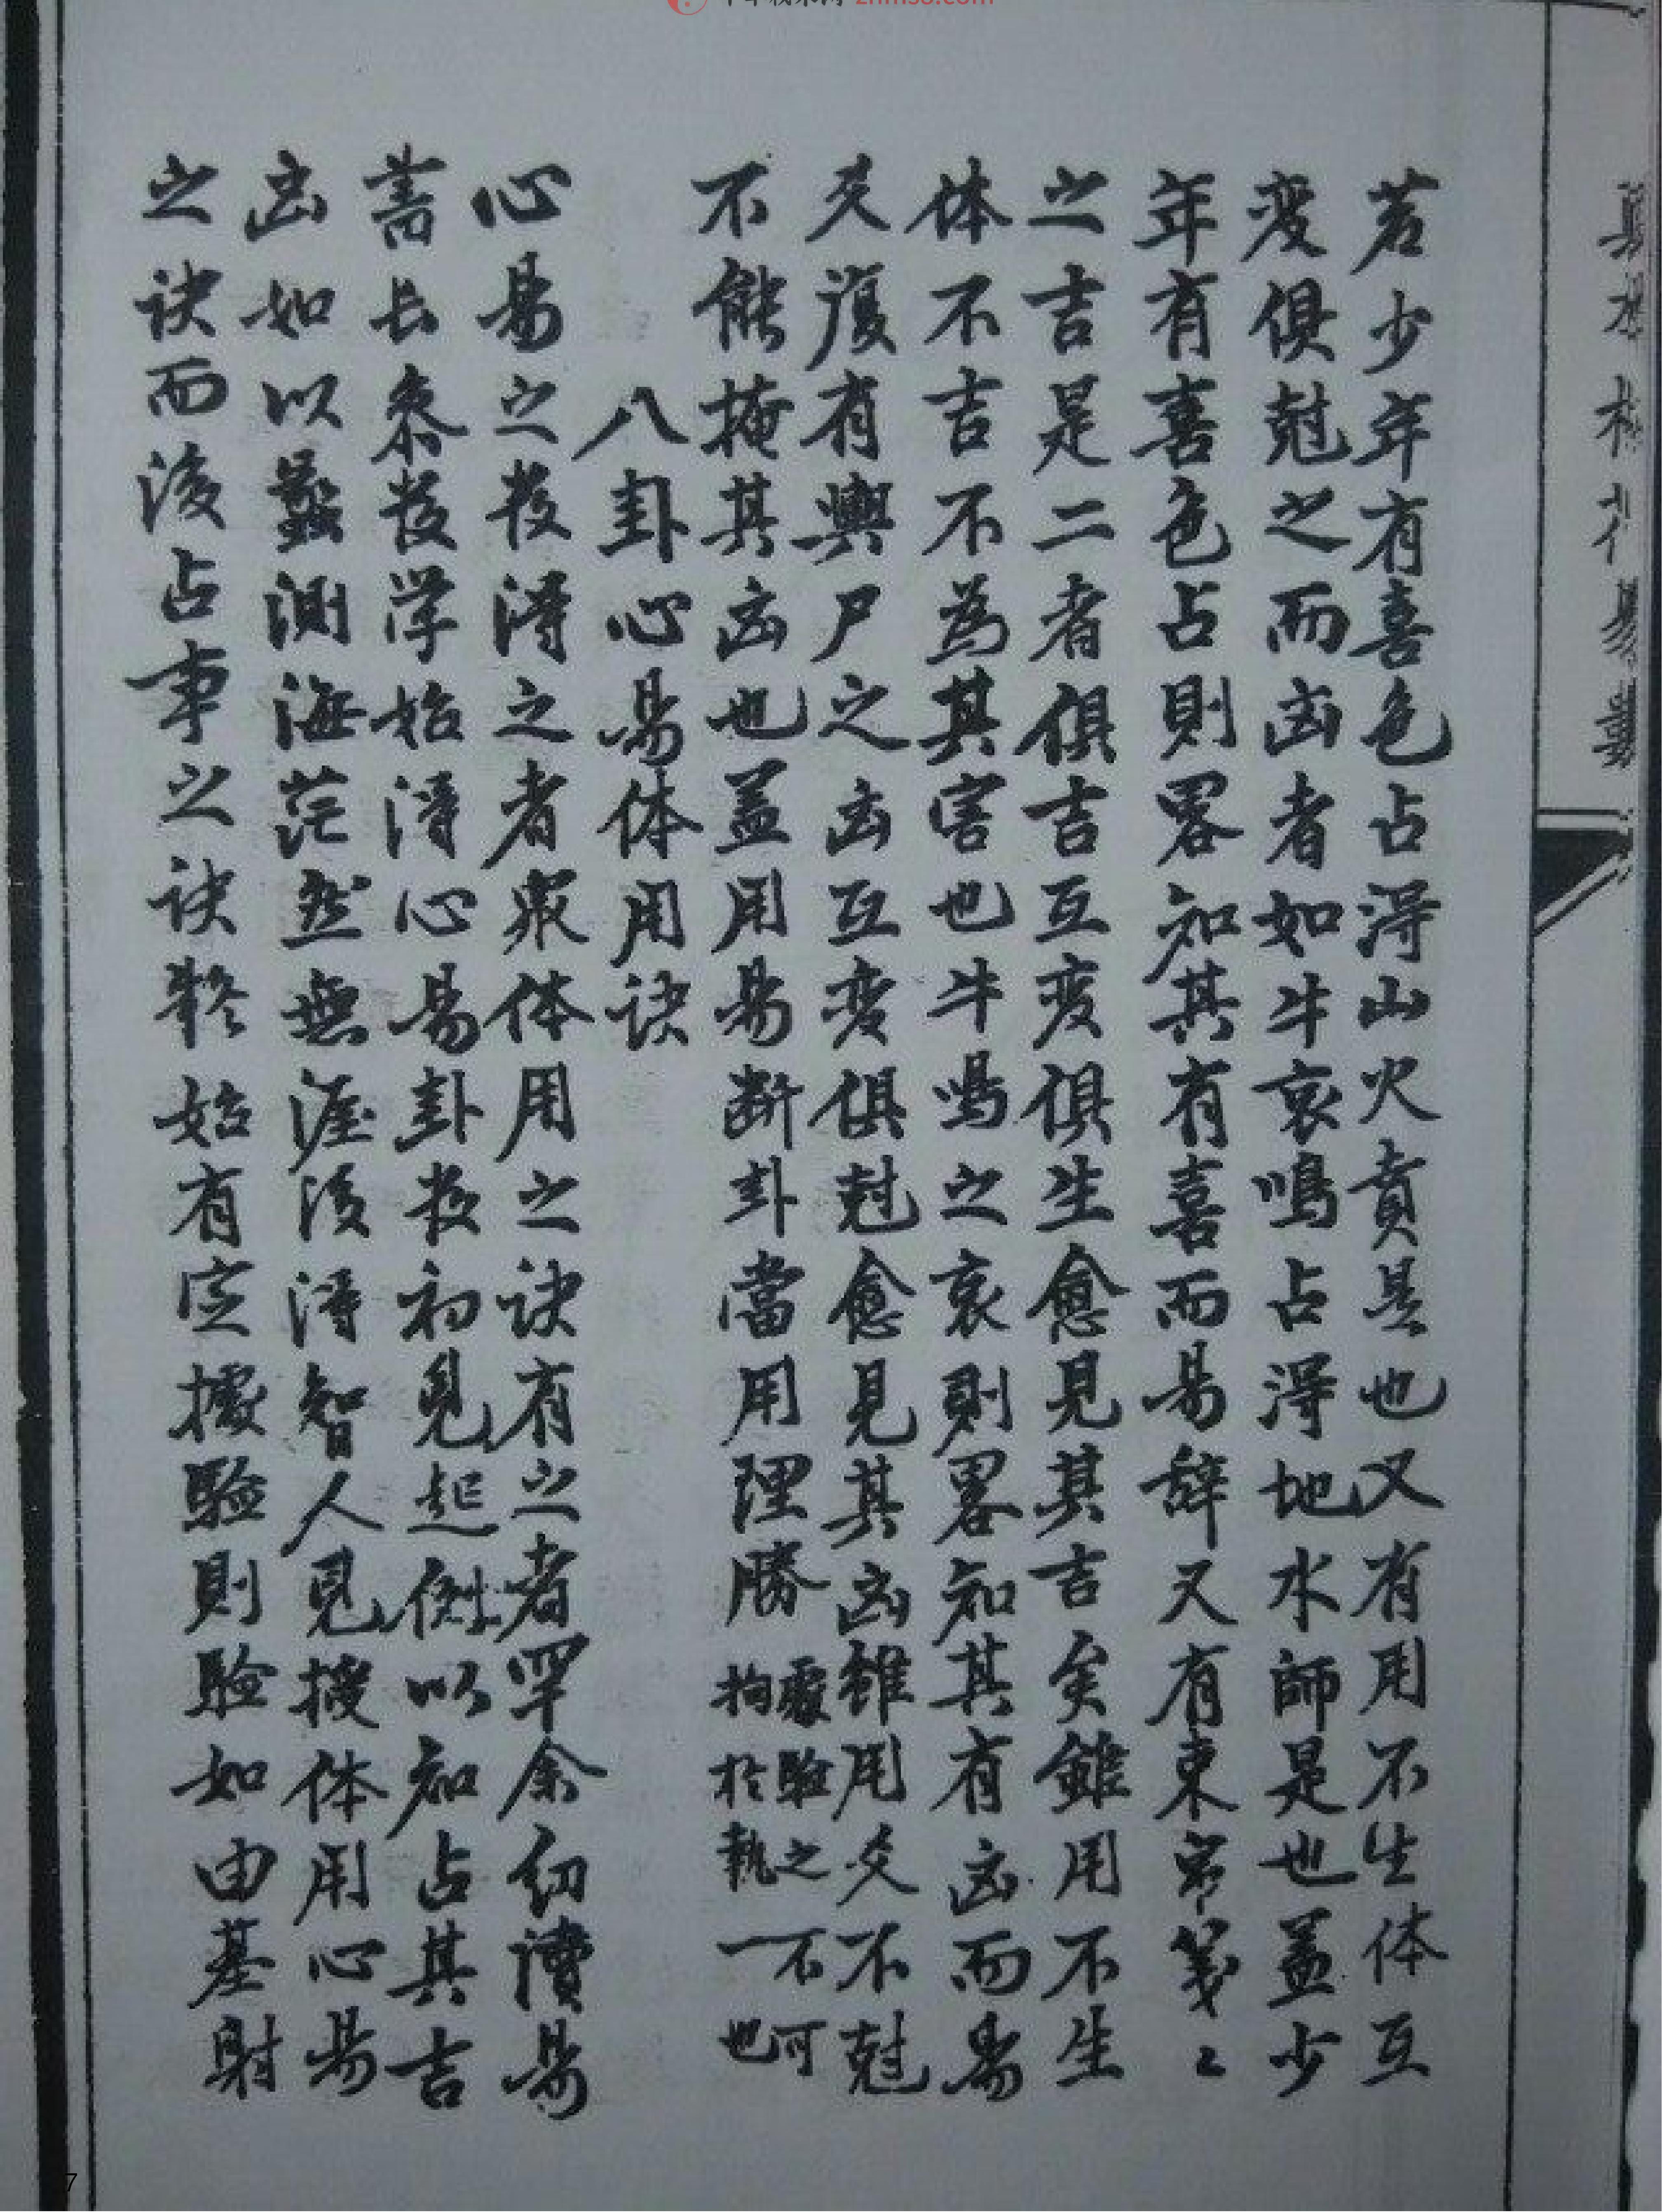 若少年有喜色占得山火賁是也又有用不生体互
变俱尅之而凶者如牛哀鳴占得地水師是也盖少
年有喜色占則畧知其有喜而易辞又有束帛箋〻
之吉是二者俱吉互变俱生愈見其吉矣雖用不生
体不吉吉不為其害也牛鳴之哀則畧知其有凶而易
爻復有輿尸之凶互变俱尅愈見其凶雖用爻不尅
不能掩其凶也盖用易断卦當用理勝處驗之不可
拘於執一也
八卦心易体用訣
心易之数得之者眾体用之訣有之者罕余幼讀易
書長參数学始得心易卦数初見起例以知占其吉
凶如以蠡測海茫然無涯後得智人見授体用心易
之訣而後占事之訣終始有定據驗則驗如由基射